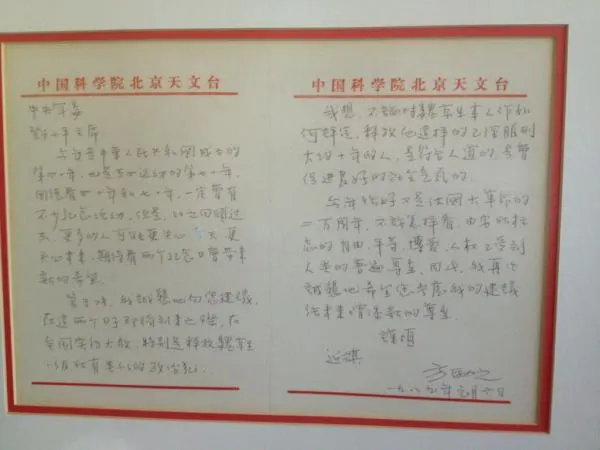 中国科学院北京天文台
中央军委
邓小平主席
今年是中华人民共和国成立的
第四十年，也是五四运动的第七十年。
围绕着四十年和七十年，一定会有
不少纪念活动，但是，比之回顾过
去，更多的人可能更关心今天，更
关心未来，期待着两个纪念日会带来
新的希望。
鉴于此，我诚恳地向您建议，
在这两个日子即将到来之际，在
全国实行大赦，特别是释放魏京生
以及所有类似的政治犯。
中国科学院北京天文台
我想，不论对魏京生本人作如
何评定，释放他这样的已经服刑
大约十年的人，是符合人道的，是会
促进良好的社会气氛的。
今年恰好又是法国大革命的
二百周年，不论怎样看，由它所标
志的自由，平等，博爱，人权已受到
人类的普遍尊重。因此，我再次
诚恳地希望您考虑我的建议，
给未来增添新的尊重。
谨颂
近祺
方励之
一九八九年元月六日